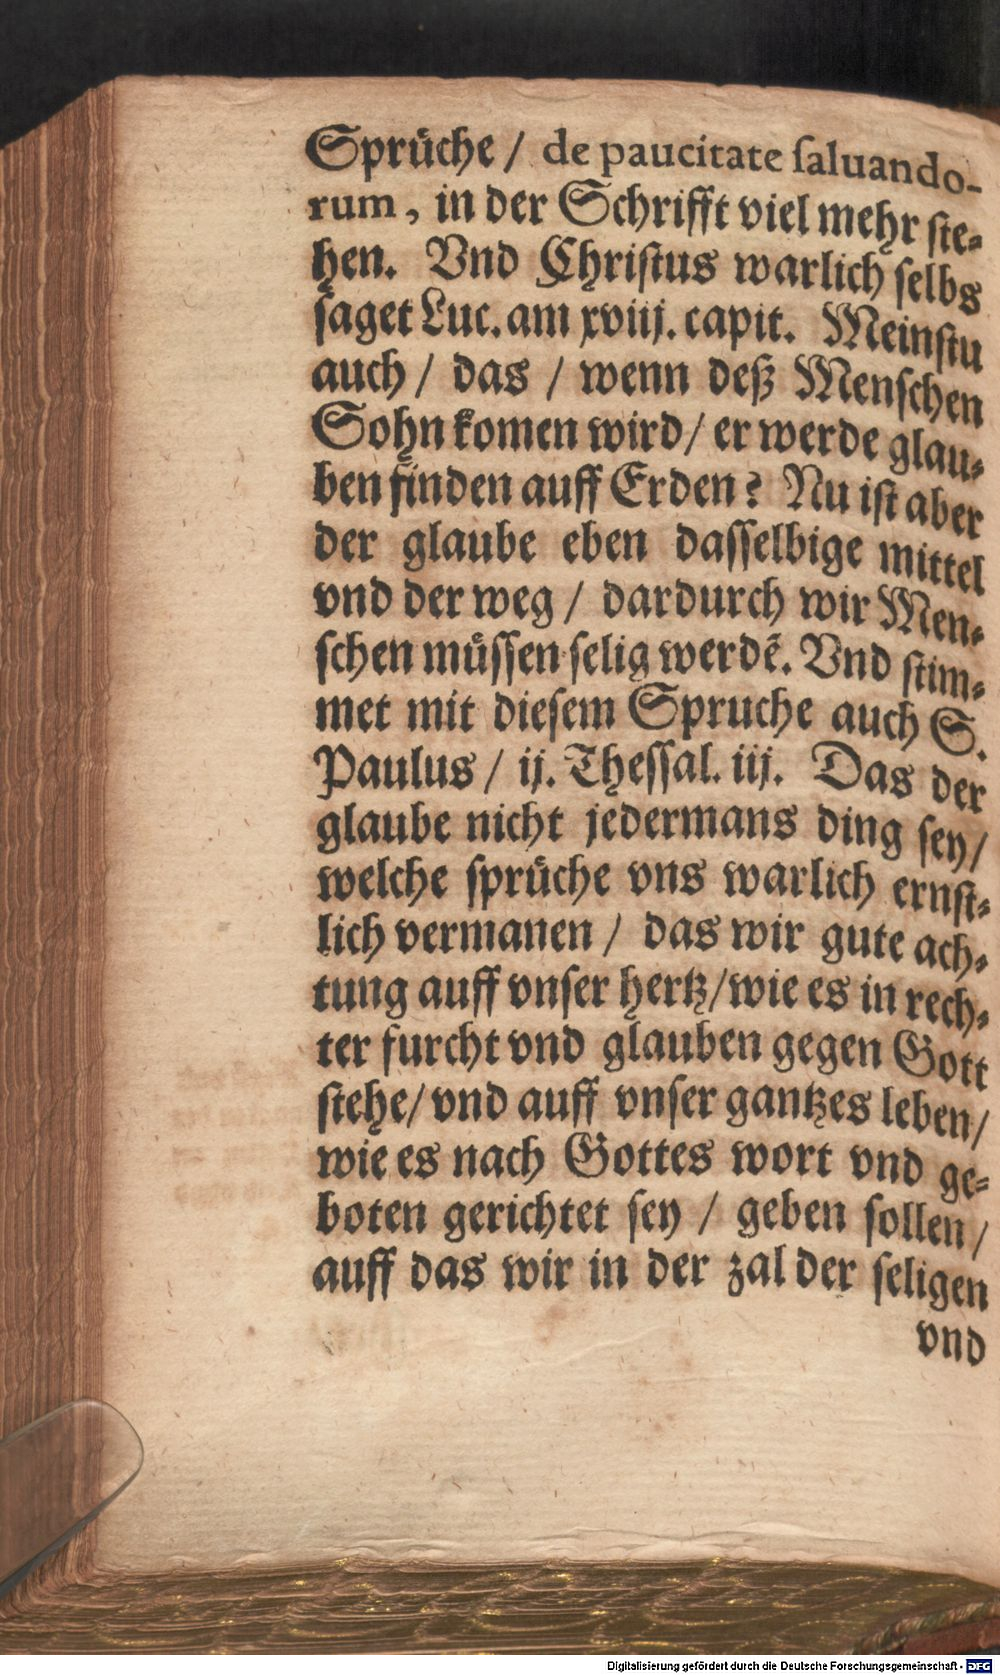 Sprüche / de paucitate ſaluando-
rum, in der Schrifft viel mehr ſte-
hen. Vnd Chriſtus warlich ſelbs
ſaget Luc. am xviij. capit. Meinſtu
auch / das / wenn deß Menſchen
Sohn komen wird / er werde glau-
ben finden auff Erden? Nu iſt aber
der glaube eben daſſelbige mittel
vnd der weg / dardurch wir Men-
ſchen müſſen ſelig werdẽ. Vnd ſtim-
met mit dieſem Spruche auch S.
Paulus / ij. Theſſal. iij. Das der
glaube nicht jedermans ding ſey /
welche ſprüche vns warlich ernſt-
lich vermanen / das wir gute ach-
tung auff vnſer hertz / wie es in rech-
ter furcht vnd glauben gegen Gott
ſtehe / vnd auff vnſer gantzes leben /
wie es nach Gottes wort vnd ge-
boten gerichtet ſey / geben ſollen /
auff das wir in der zal der ſeligen
vnd
Digitalisierung gefördert durch die Deutsche Forschungsgemeinschaft - DFG